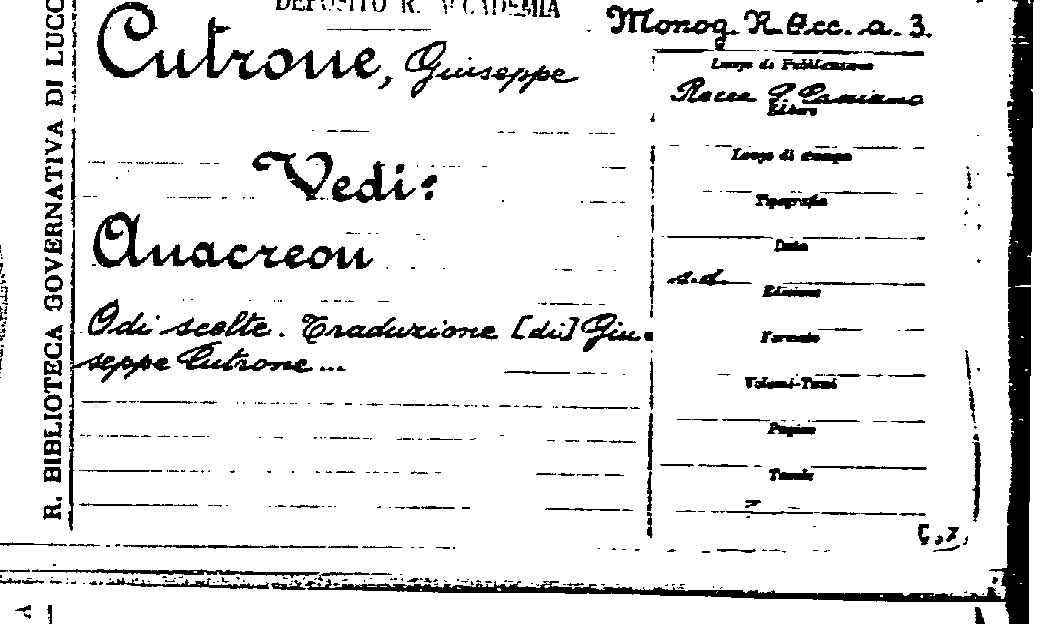 DEPOSITO R. ACCADEMIA
Monog. R. Acc. a. 3.
Cutrone, Giuseppe
Vedi:
Anacreon
Odi scelte. Traduzione [di] Giu-
seppe Cutrone ...
Luogo di Pubblicazione
Rocca S. Casciano
Editore
Luogo di stampa
Tipografia
Data
s.d.
Edizione
Formato
Volumi-Tomi
Pagine
Tavole
R. BIBLIOTECA GOVERNATIVA DI LUCC